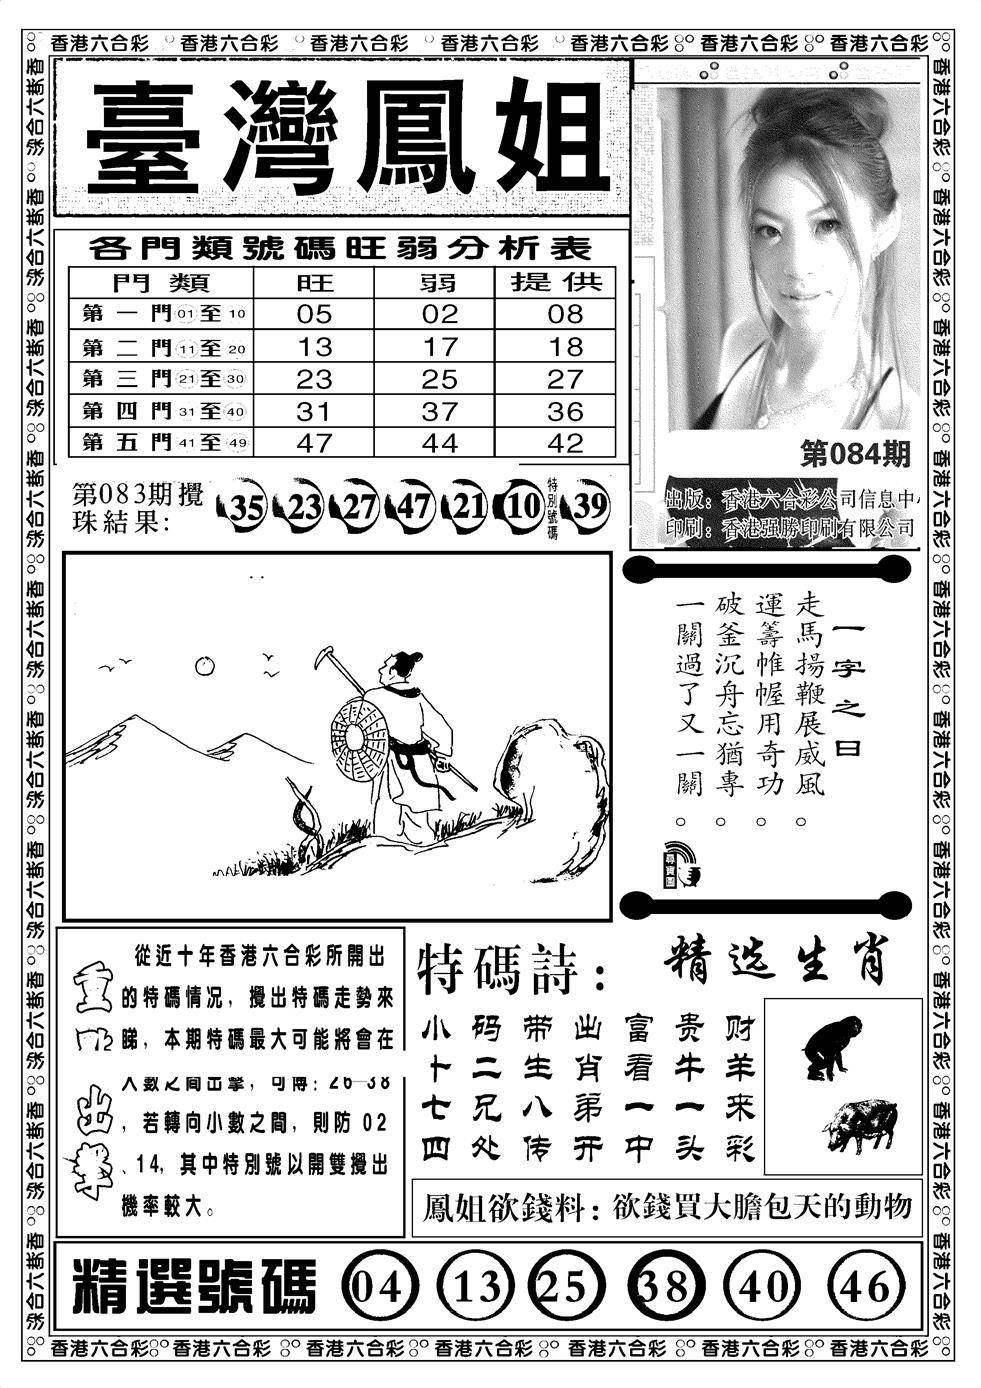 香港六合彩 香港六合彩 香港六合彩 香港六合彩 香港六合彩 香港六合彩 香港六合彩
臺灣鳳姐
各門類號碼旺弱分析表
門類 旺 弱 提供
第一門01至10 05 02 08
第二門11至20 13 17 18
第三門21至30 23 25 27
第四門31至40 31 37 36
第五門41至49 47 44 42
第083期攪珠結果: 35 23 27 47 21 10 特別號碼 39
第084期
出版：香港六合彩公司信息中心
印刷：香港强勝印刷有限公司
一字之曰
走馬揚鞭展威風。
運籌帷幄用奇功。
破釜沉舟忘猶專。
一關過了又一關。
尋寶圖
重口出擊
從近十年香港六合彩所開出
的特碼情况，攪出特碼走勢來
睇，本期特碼最大可能將會在
大數之間出擊，可博：26-38
，若轉向小數之間，則防 02
、14，其中特別號以開雙攪出
機率較大。
特碼詩：
小码带出富贵财
十二生肖看牛羊
七兄八弟一一来
四处传开中头彩
精选生肖
鳳姐欲錢料：欲錢買大膽包天的動物
精選號碼 04 13 25 38 40 46
香港六合彩 香港六合彩 香港六合彩 香港六合彩 香港六合彩 香港六合彩 香港六合彩